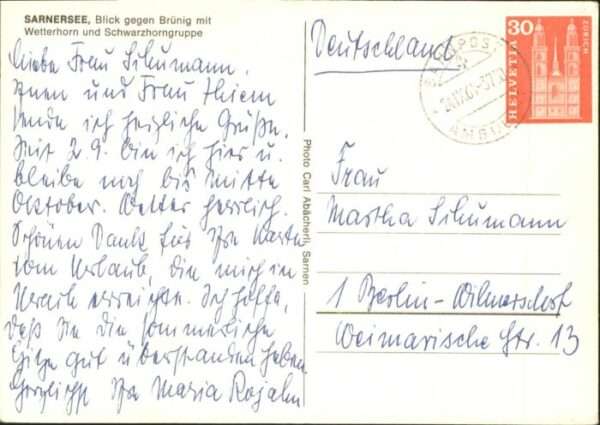 SARNERSEE, Blick gegen Brünig mit
Wetterhorn und Schwarzhorngruppe
Liebe Frau Schumann.
Ihnen und Frau Thiem
sende ich herzliche Grüße.
Seit 2.9. bin ich hier u.
bleibe noch bis Mitte
Oktober. Wetter herrlich.
Schönen Dank für Ihre Karte
vom Urlaub, die mich in
erreichte. Ich hoffe,
daß Sie die sommerliche
Hitze gut überstanden haben
Herzlichst Ihre Maria
Photo Carl Abächerli, Sarnen
Deutschland
30
HELVETIA
ZÜRICH
Frau
Martha Schumann
1 Berlin-Wilmersdorf
Weimarische Str. 13